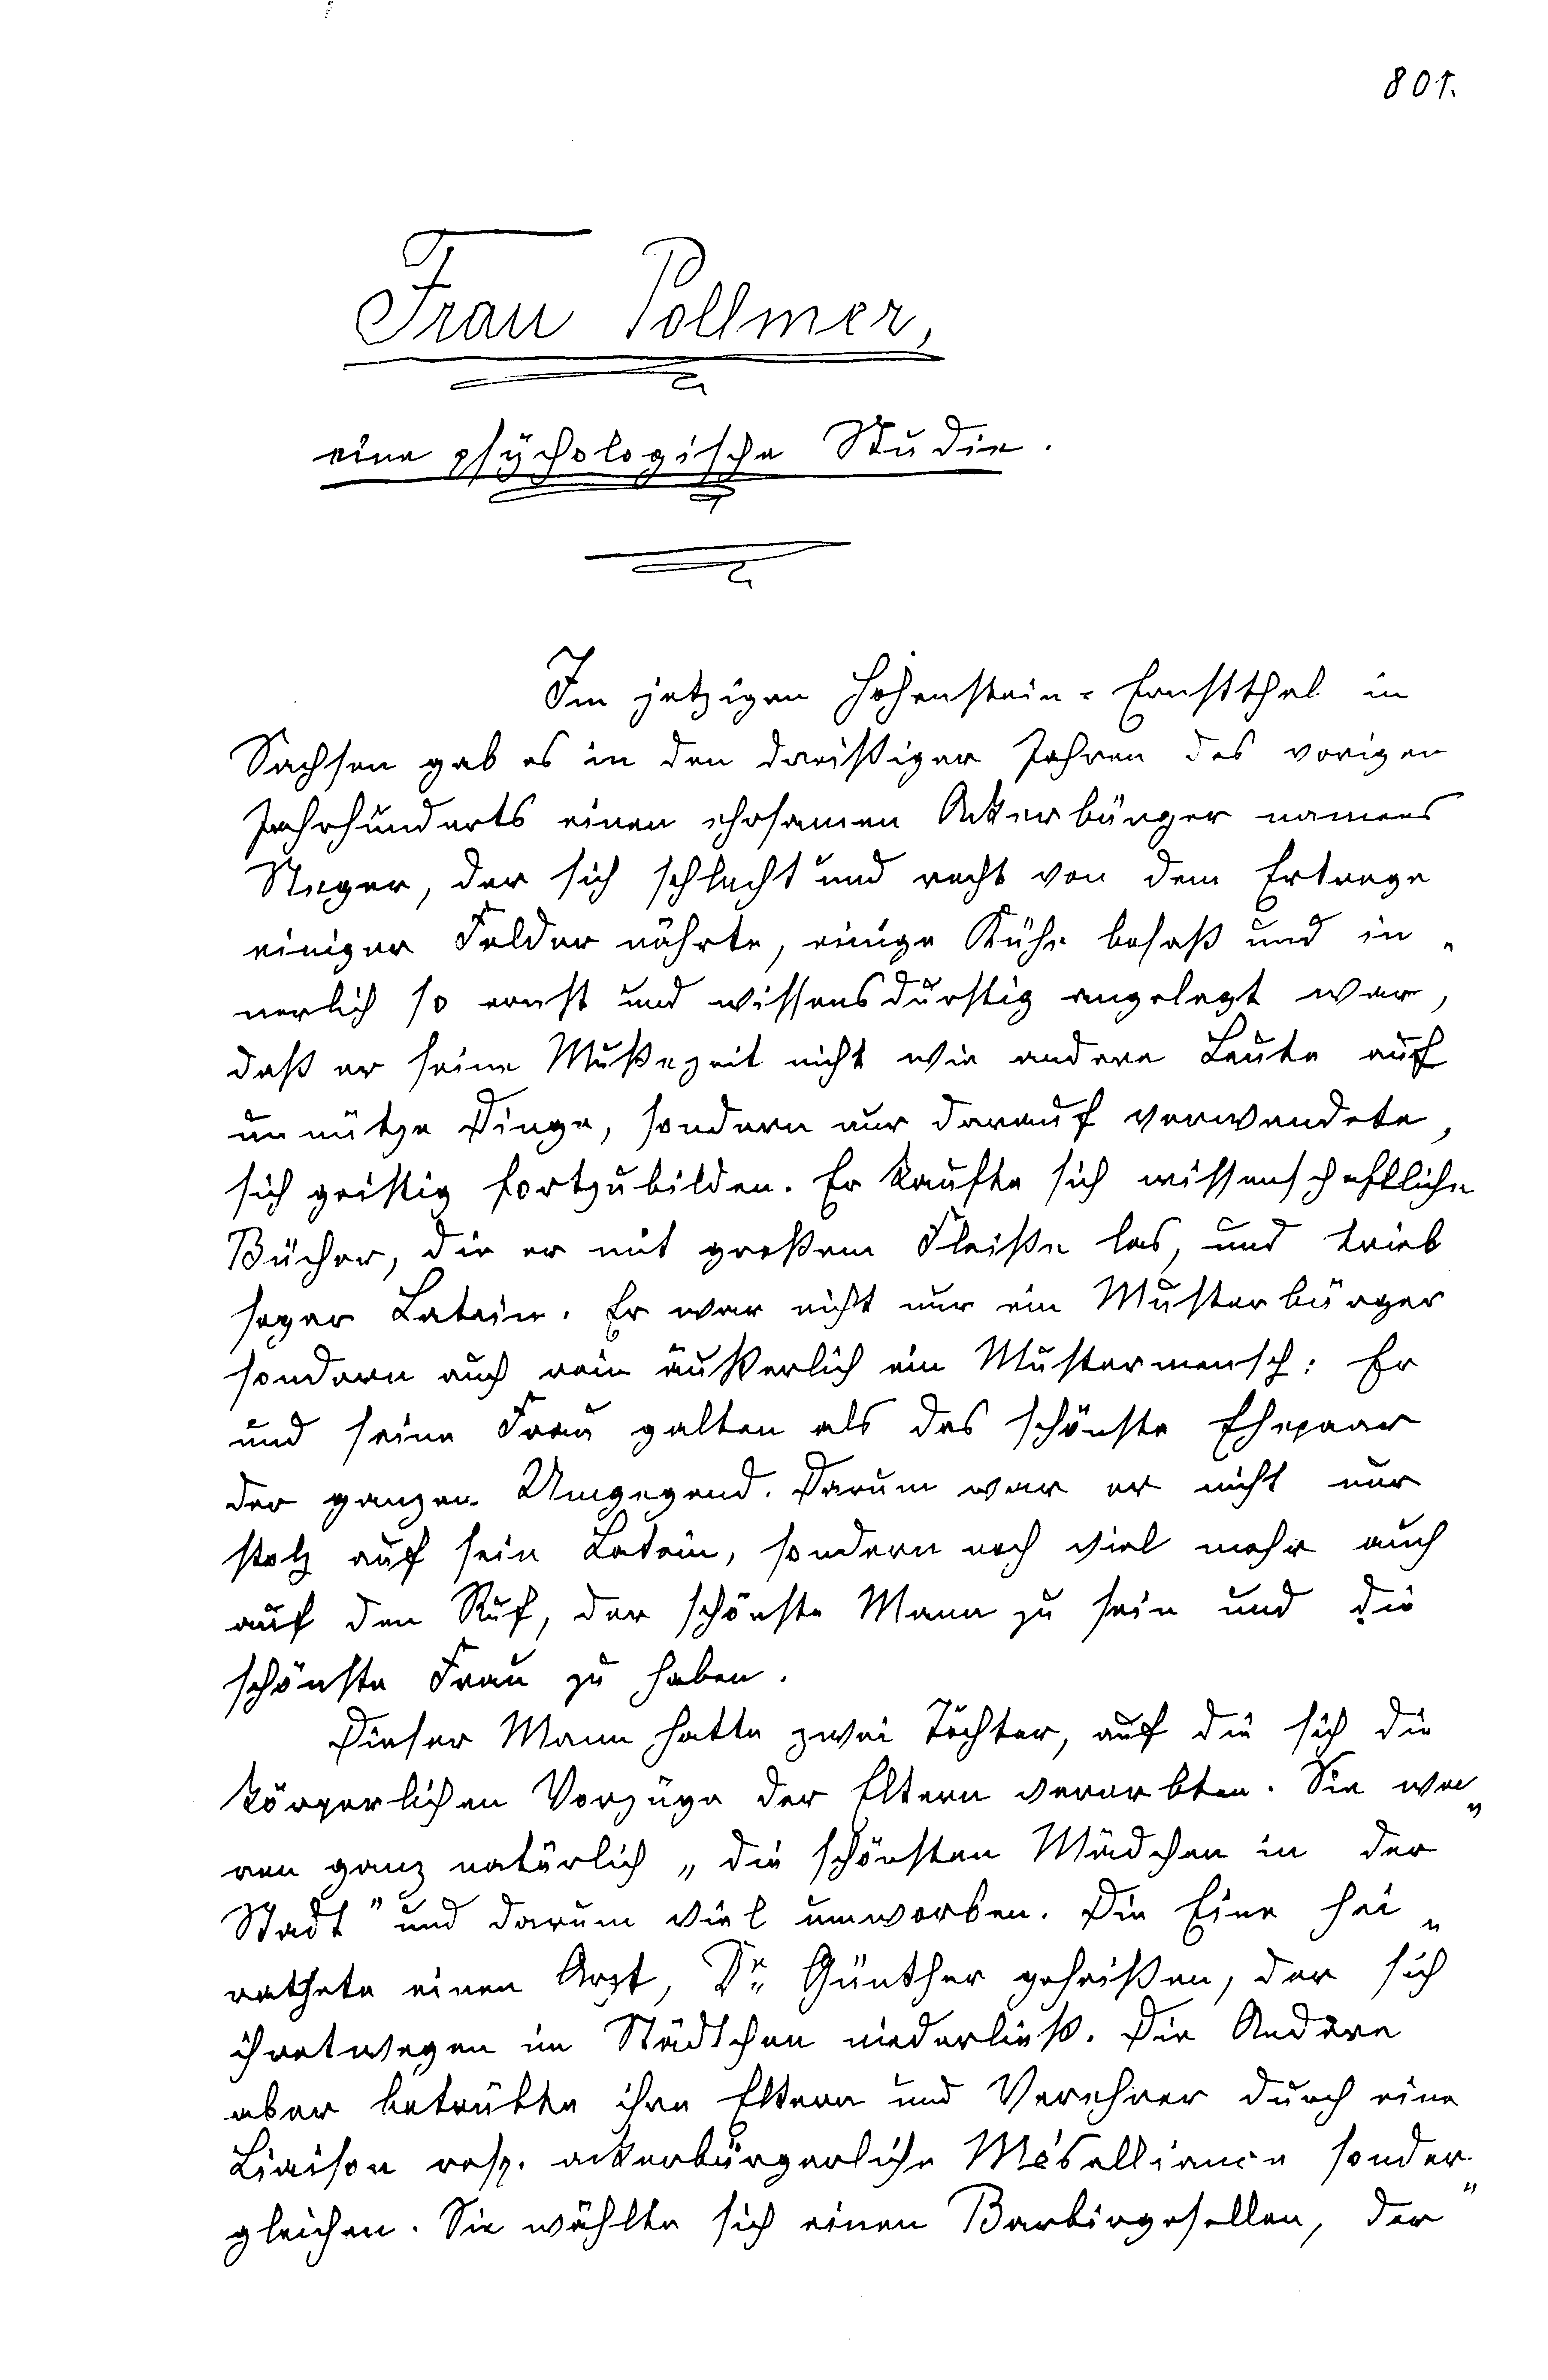 801.
Frau Pollmer,
eine psychologische Studie.
Im jetzigen Hohenstein-Ernstthal in
Sachsen gab es in den dreißiger Jahren des vorigen
Jahrhunderts einen ehrsamen Ackerbürger namens
Steger, der sich schlecht und recht von dem Ertrage
einiger Felder nährte, einige Kühe besaß und in-
nerlich so ernst und wissensdurstig angelegt war,
daß er seine Mußezeit nicht wie andere Leute auf
unnütze Dinge, sondern nur darauf verwendete,
sich geistig fortzubilden. Er kaufte sich wissenschaftliche
Bücher, die er mit großem Fleiße las, und trieb
sogar Latein. Er war nicht nur ein Musterbürger
sondern auch rein äußerlich ein Mustermensch: Er
und seine Frau galten als das schönste Ehepaar
der ganzen Umgegend. Darum war er nicht nur
stolz auf sein Latein, sondern noch viel mehr auch
auf den Ruf, der schönste Mann zu sein und die
schönste Frau zu haben.
Dieser Mann hatte zwei Töchter, auf die sich die
körperlichen Vorzüge der Eltern vererbten. Sie wa-
ren ganz natürlich „die schönsten Mädchen in der
Stadt" und darum viel umworben. Die Eine hei-
rathete einen Arzt, Dr. Günther geheißen, der sich
ihretwegen im Städtchen niederließ. Die Andere
aber betrübte ihre Eltern und Verehrer durch eine
Liaison resp. ackerbürgerliche Mésalliance sonder-
gleichen. Sie wählte sich einen Barbiergesellen, der